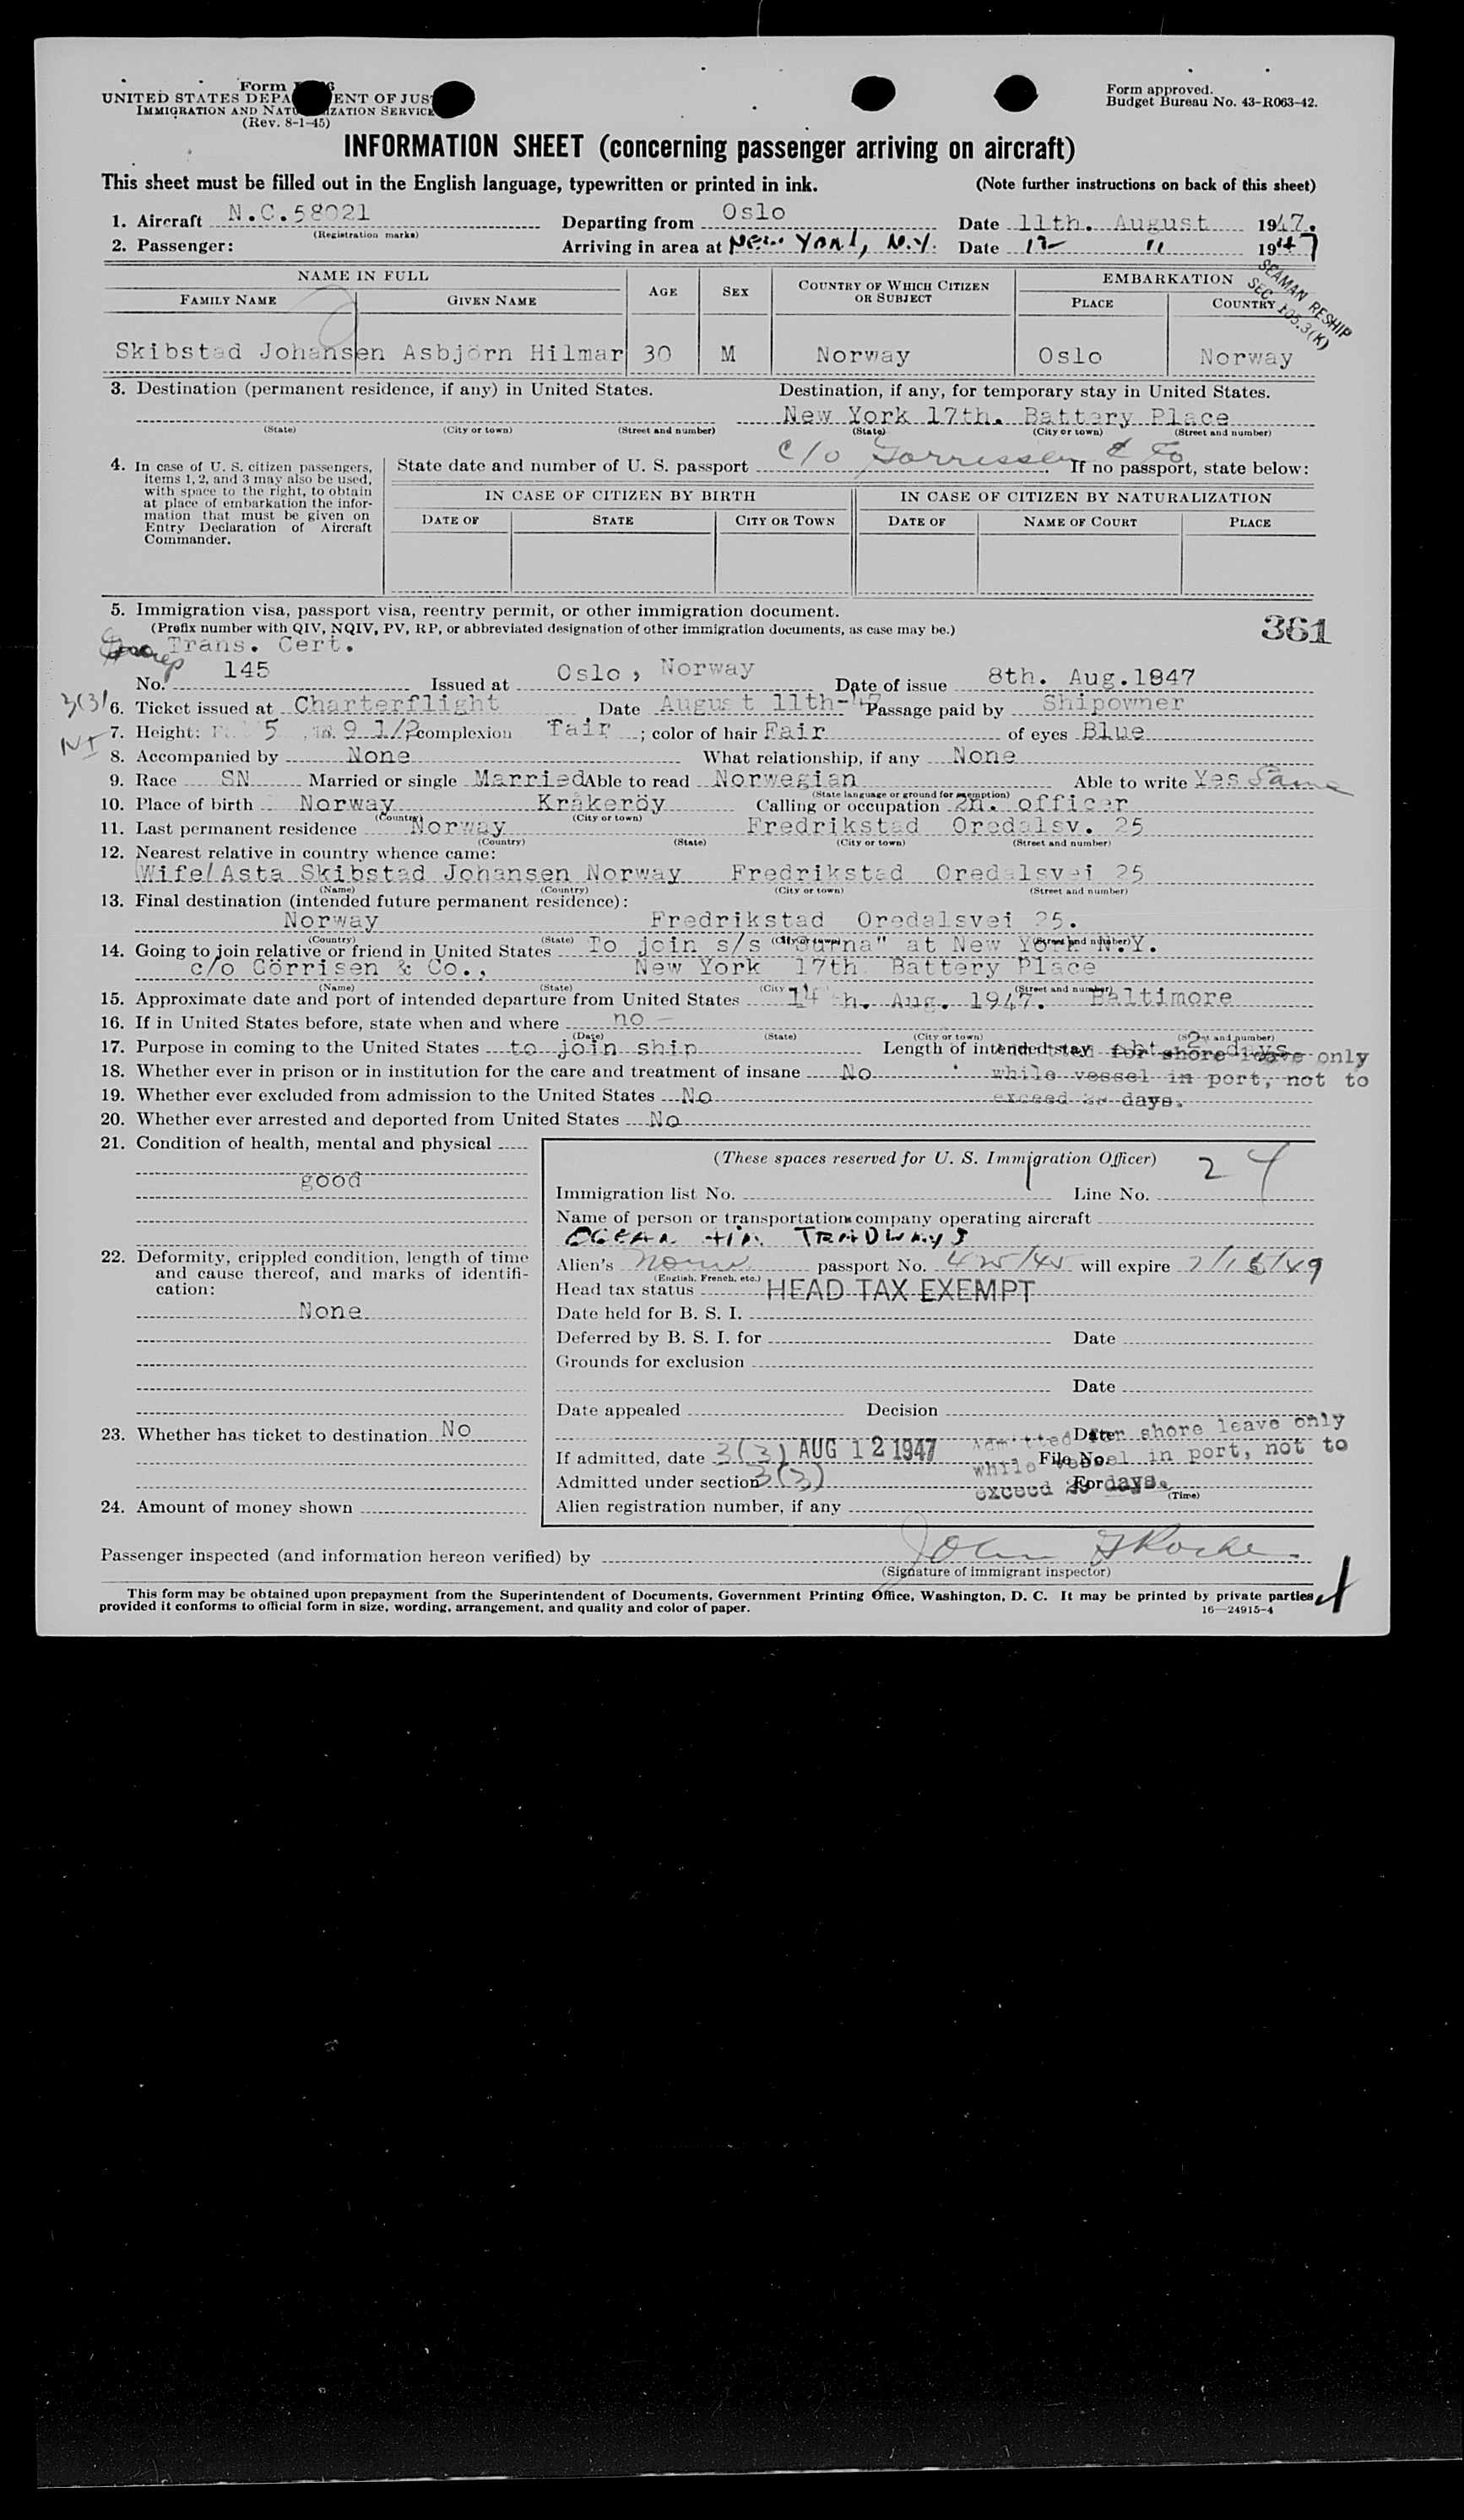 Form
UNITED STATES DEPA ENT OF JUS
IMMIGRATION AND NATU IZATION SERVICE
(Rev. 8-1-45)
Form approved.
Budget Bureau No. 43-R063-42.
INFORMATION SHEET (concerning passenger arriving on aircraft)
This sheet must be filled out in the English language, typewritten or printed in ink. (Note further instructions on back of this sheet)
1. Aircraft N.C.58021 Departing from Oslo Date 11th. August 1947.
(Registration marks)
2. Passenger: Arriving in area at New York, N.Y. Date 12 " 1947
SEAMAN RESHIP
SEC. 105.3(K)
NAME IN FULL AGE SEX COUNTRY OF WHICH CITIZEN OR SUBJECT EMBARKATION
FAMILY NAME GIVEN NAME PLACE COUNTRY
Skibstad Johansen Asbjörn Hilmar 30 M Norway Oslo Norway
3. Destination (permanent residence, if any) in United States. Destination, if any, for temporary stay in United States.
New York 17th. Battery Place
(State) (City or town) (Street and number) (State) (City or town) (Street and number)
c/o Gorrissen & Co
4. In case of U. S. citizen passengers, items 1, 2, and 3 may also be used, with space to the right, to obtain at place of embarkation the information that must be given on Entry Declaration of Aircraft Commander.
State date and number of U. S. passport If no passport, state below:
IN CASE OF CITIZEN BY BIRTH IN CASE OF CITIZEN BY NATURALIZATION
DATE OF STATE CITY OR TOWN DATE OF NAME OF COURT PLACE
5. Immigration visa, passport visa, reentry permit, or other immigration document.
(Prefix number with QIV, NQIV, PV, RP, or abbreviated designation of other immigration documents, as case may be.)
361
Trans. Cert.
No. 145 Issued at Oslo, Norway Date of issue 8th. Aug.1947
3(3)
6. Ticket issued at Charterflight Date August 11th-47 Passage paid by Shipowner
7. Height: Ft. 5 , in. 9 1/2; complexion fair; color of hair Fair of eyes Blue
NI
8. Accompanied by None What relationship, if any None
9. Race SN Married or single Married Able to read Norwegian Able to write Yes Same
(State language or ground for exemption)
10. Place of birth Norway Kråkeröy Calling or occupation 2n. officer
(Country) (City or town)
11. Last permanent residence Norway Fredrikstad Oredalsv. 25
(Country) (State) (City or town) (Street and number)
12. Nearest relative in country whence came:
Wife/Asta Skibstad Johansen Norway Fredrikstad Oredalsvei 25
(Name) (Country) (City or town) (Street and number)
13. Final destination (intended future permanent residence):
Norway Fredrikstad Oredalsvei 25.
(Country) (State) (City or town) (Street and number)
14. Going to join relative or friend in United States To join s/s "Surna" at New York N.Y.
c/o Görrisen & Co., New York 17th Battery Place
(Name) (State) (City (Street and number)
15. Approximate date and port of intended departure from United States 14th. Aug. 1947. Baltimore
16. If in United States before, state when and where no
(Date) (State) (City or town) (Street and number)
17. Purpose in coming to the United States to join ship Length of intended stay abt. 2 days
for shore leave only
18. Whether ever in prison or in institution for the care and treatment of insane No
while vessel in port, not to
19. Whether ever excluded from admission to the United States No
exceed 29 days.
20. Whether ever arrested and deported from United States No
21. Condition of health, mental and physical
good
(These spaces reserved for U. S. Immigration Officer)
24
Immigration list No. Line No.
Name of person or transportation company operating aircraft
OCEAN AIR TRADWAYS
22. Deformity, crippled condition, length of time and cause thereof, and marks of identification:
None
Alien's Norw passport No. 425/45 will expire 2/16/49
(English, French, etc.)
Head tax status HEAD TAX EXEMPT
Date held for B. S. I.
Deferred by B. S. I. for Date
Grounds for exclusion
Date
Date appealed Decision
23. Whether has ticket to destination No
Date
Admitted for shore leave only
while vessel in port, not to
exceed 29 days.
If admitted, date 3(3) AUG 12 1947 File No.
Admitted under section 3(3) For
(Time)
24. Amount of money shown
Alien registration number, if any
Passenger inspected (and information hereon verified) by John F Roche
(Signature of immigrant inspector)
This form may be obtained upon prepayment from the Superintendent of Documents, Government Printing Office, Washington, D. C. It may be printed by private parties
provided it conforms to official form in size, wording, arrangement, and quality and color of paper. 16—24915-4